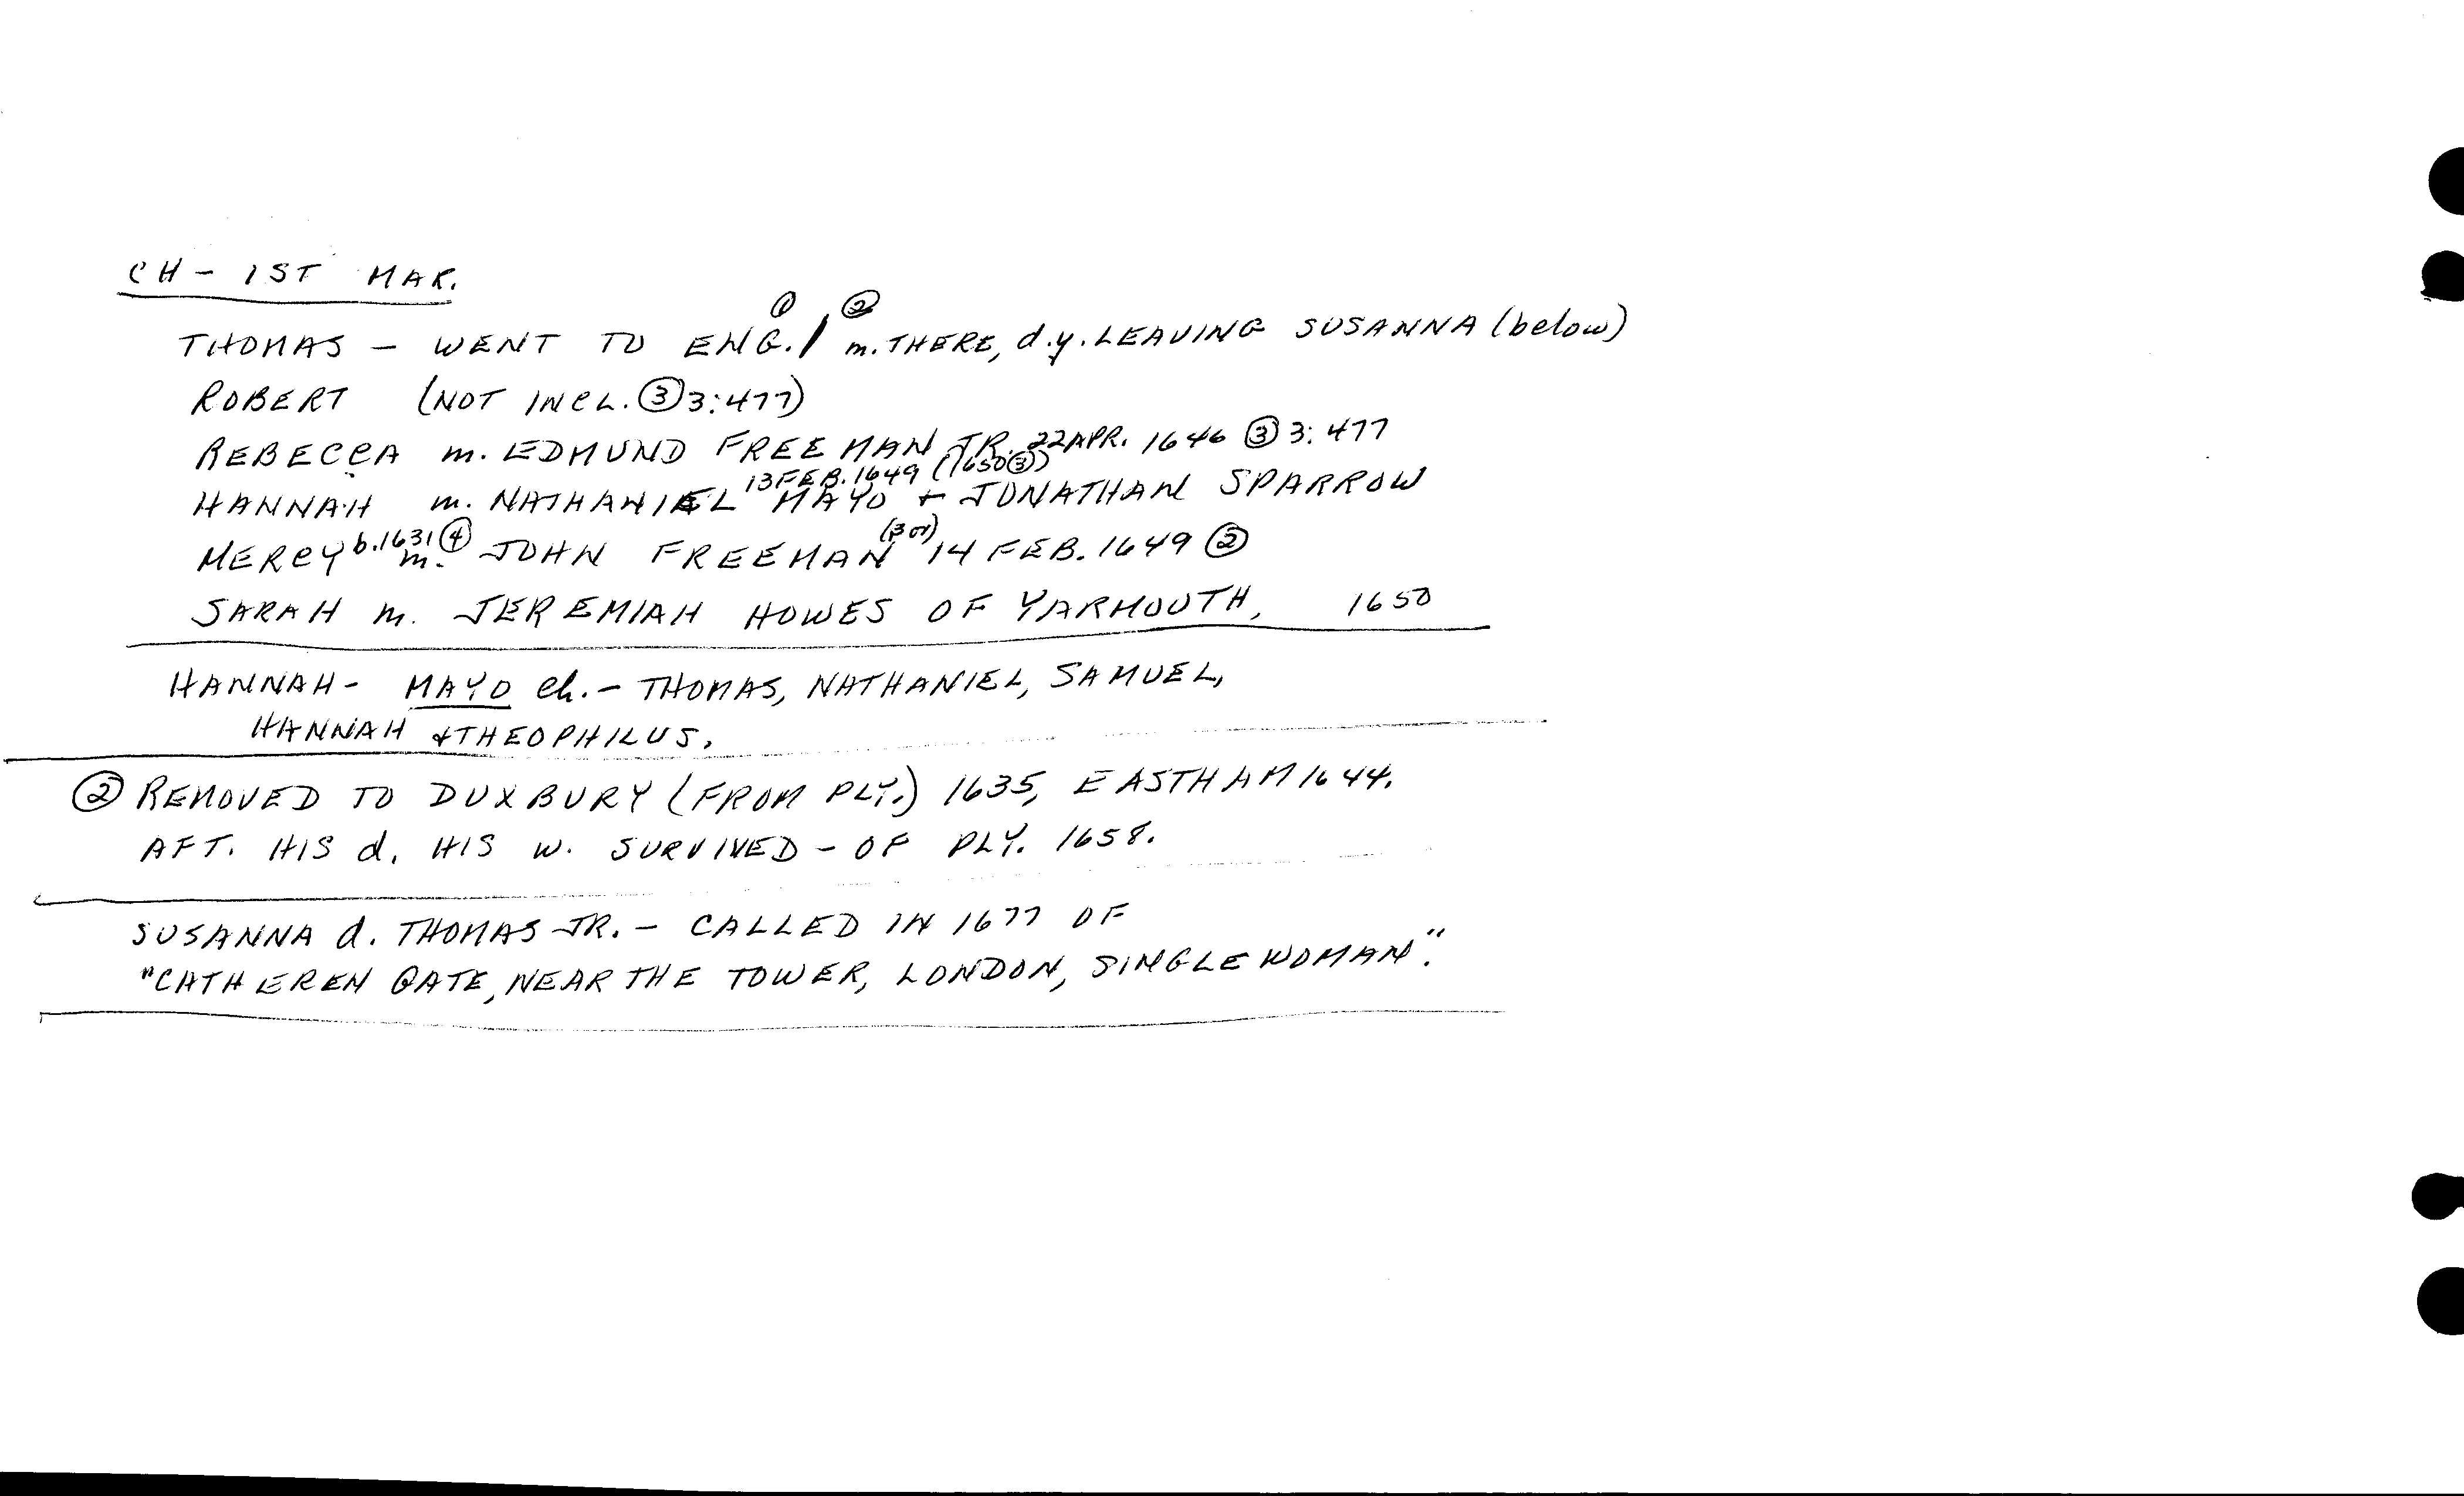 CH - 1ST MAR.
THOMAS - WENT TO ENG. ① / ② m. THERE, d.y. LEAVING SUSANNA (below)
ROBERT (NOT INCL. ③ 3:477)
REBECCA m. EDMUND FREEMAN JR. 22 APR. 1646 ③ 3:477
HANNAH m. NATHANIEL MAYO 13 FEB. 1649 (1650 ③) + JONATHAN SPARROW
MERCY b. 1631 ④ m. JOHN FREEMAN (3 or) 14 FEB. 1649 ②
SARAH m. JEREMIAH HOWES OF YARMOUTH, 1650
HANNAH - MAYO ch. - THOMAS, NATHANIEL, SAMUEL,
HANNAH & THEOPHILUS.
② REMOVED TO DUXBURY (FROM PLY.) 1635, EASTHAM 1644.
AFT. HIS d. HIS w. SURVIVED - OF PLY. 1658.
SUSANNA d. THOMAS JR. - CALLED IN 1677 OF
"CATHEREN GATE, NEAR THE TOWER, LONDON, SINGLE WOMAN".